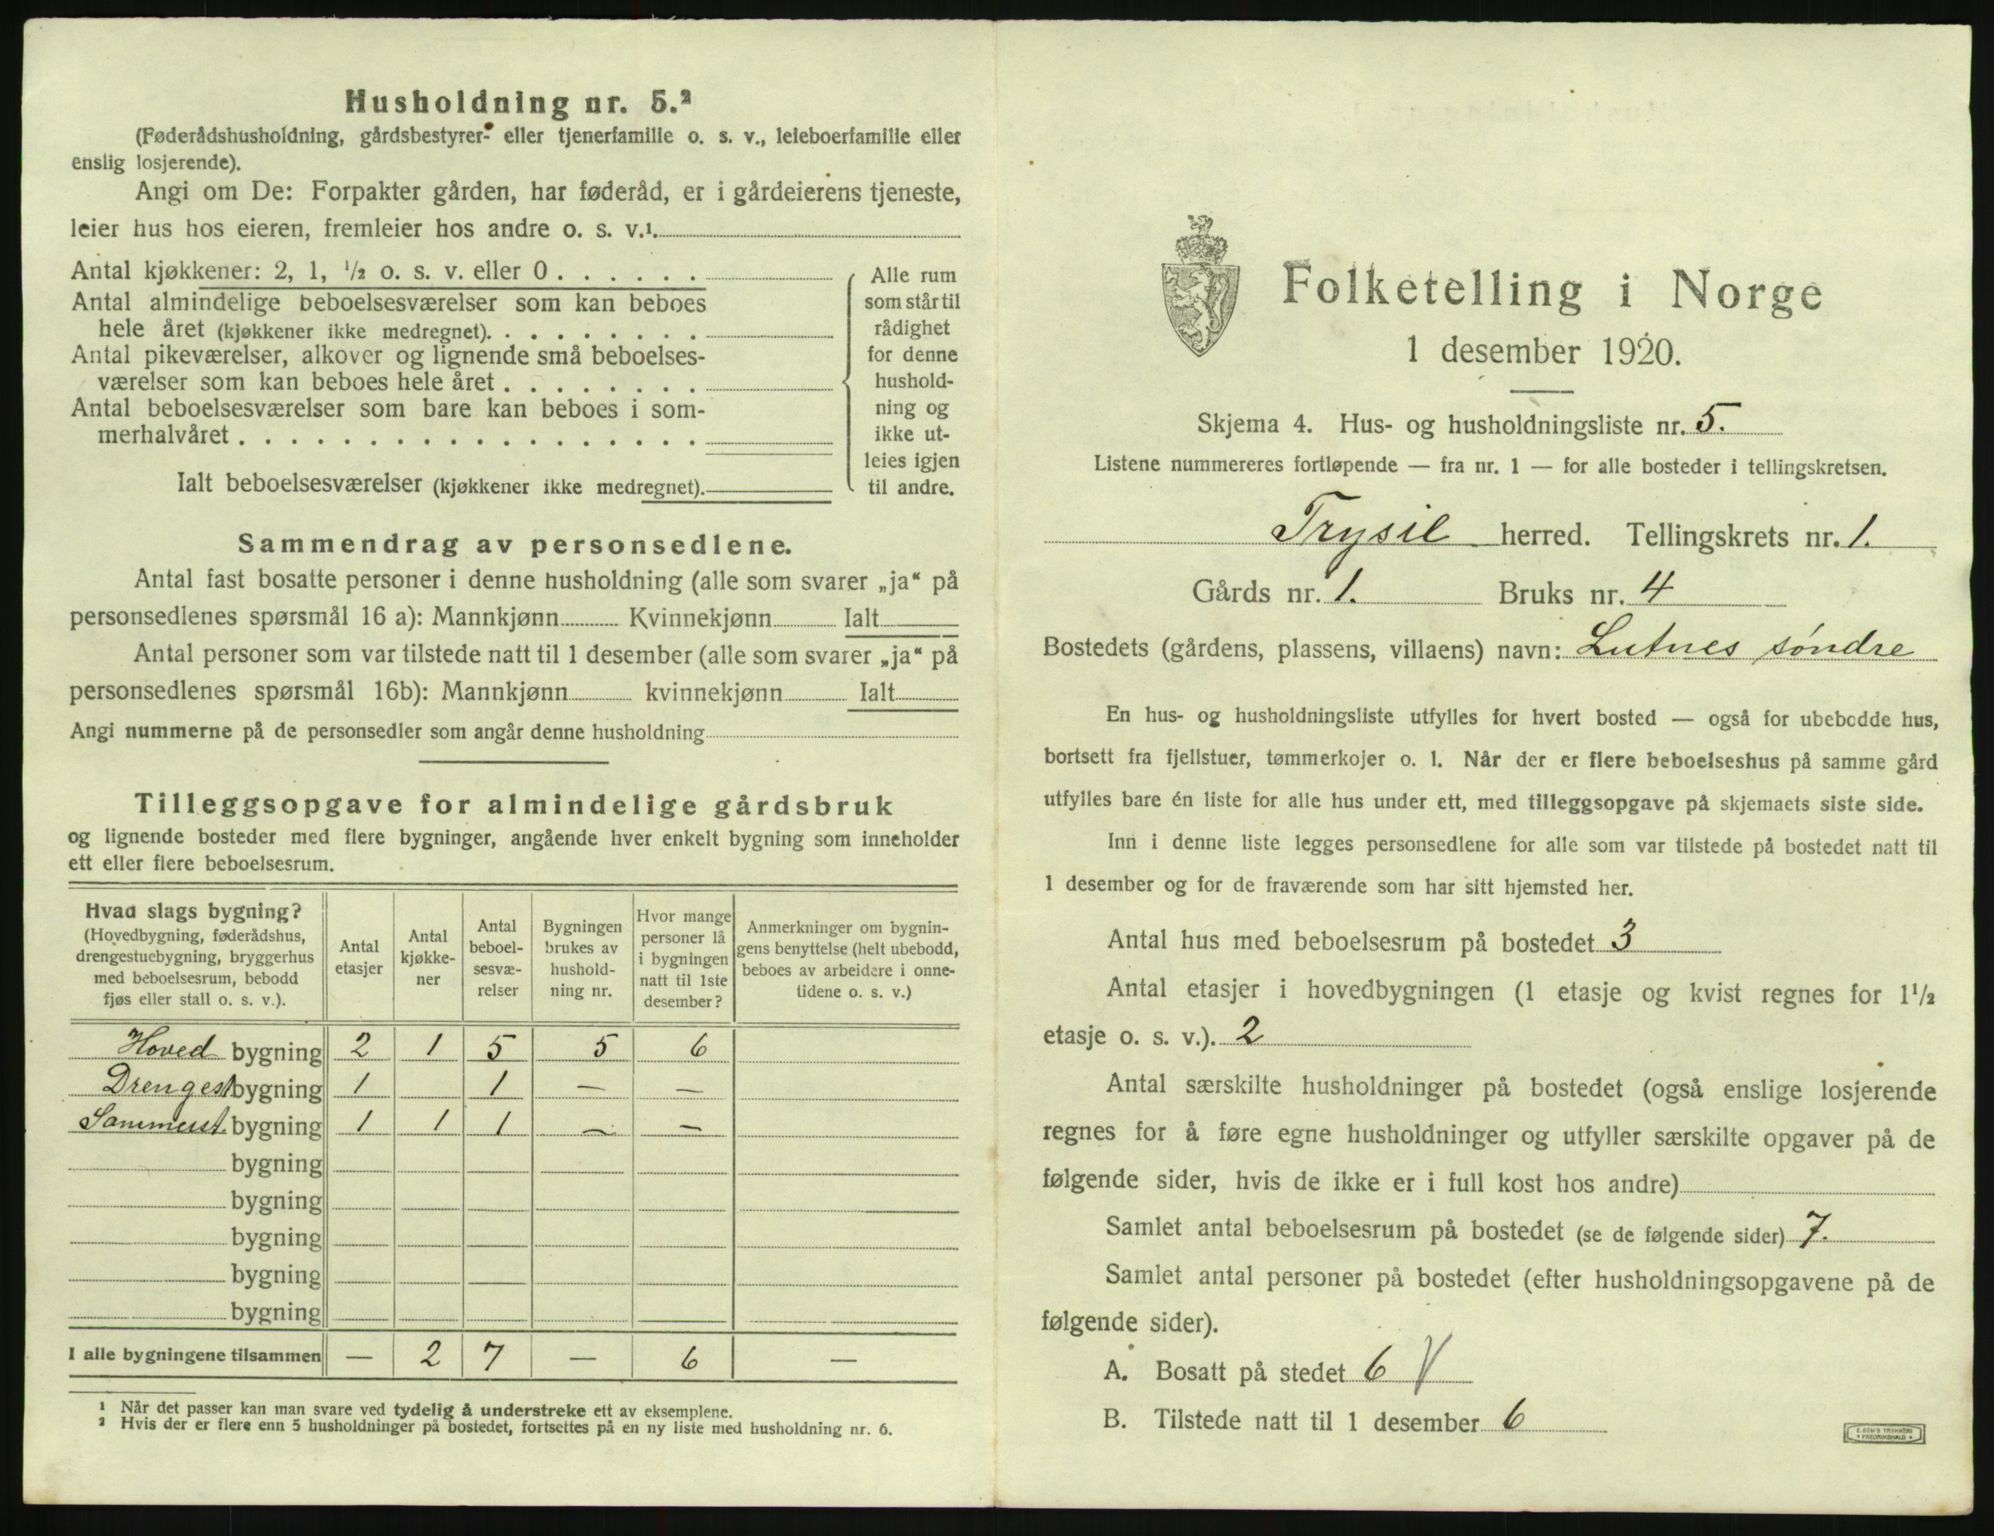 Husholdning nr. 5.²
(Føderådshusholdning, gårdsbestyrer- eller tjenerfamilie o. s. v., leieboerfamilie eller
enslig losjerende).
Angi om De: Forpakter gården, har føderåd, er i gårdeierens tjeneste,
leier hus hos eieren, fremleier hos andre o. s. v.¹.
Antal kjøkkener: 2, 1, ½ o. s. v. eller 0 . . . . . .
Antal almindelige beboelsesværelser som kan beboes
hele året (kjøkkener ikke medregnet). . . . . . . . .
Antal pikeværelser, alkover og lignende små beboelses-
værelser som kan beboes hele året . . . . . . . .
Antal beboelsesværelser som bare kan beboes i som-
merhalvåret . . . . . . . . . . . . . . . . . .
Ialt beboelsesværelser (kjøkkener ikke medregnet).
Alle rum
som står til
rådighet
for denne
hushold-
ning og
ikke ut-
leies igjen
til andre.
Sammendrag av personsedlene.
Antal fast bosatte personer i denne husholdning (alle som svarer „ja“ på
personsedlenes spørsmål 16 a): Mannkjønn Kvinnekjønn Ialt
Antal personer som var tilstede natt til 1 desember (alle som svarer „ja“ på
personsedlenes spørsmål 16b): Mannkjønn kvinnekjønn Ialt
Angi nummerne på de personsedler som angår denne husholdning
Tilleggsopgave for almindelige gårdsbruk
og lignende bosteder med flere bygninger, angående hver enkelt bygning som inneholder
ett eller flere beboelsesrum.
Hvad slags bygning?
(Hovedbygning, føderådshus,
drengestuebygning, bryggerhus
med beboelsesrum, bebodd
fjøs eller stall o. s. v.).
Antal
etasjer
Antal
kjøkke-
ner
Antal
beboel-
sesvæ-
relser
Bygningen
brukes av
hushold-
ning nr.
Hvor mange
personer lå
i bygningen
natt til 1ste
desember?
Anmerkninger om bygnin-
gens benyttelse (helt ubebodd,
beboes av arbeidere i onne-
tidene o. s. v.)
Hoved bygning 2 1 5 5 6
Drengest bygning 1 1 — —
Sommerst. bygning 1 1 1 — —
bygning
bygning
bygning
bygning
bygning
I alle bygningene tilsammen — 2 7 — 6 —
¹ Når det passer kan man svare ved tydelig å understreke ett av eksemplene.
² Hvis der er flere enn 5 husholdninger på bostedet, fortsettes på en ny liste med husholdning nr. 6.
Folketelling i Norge
1 desember 1920.
Skjema 4. Hus- og husholdningsliste nr. 5.
Listene nummereres fortløpende — fra nr. 1 — for alle bosteder i tellingskretsen.
Trysil herred. Tellingskrets nr. 1.
Gårds nr. 1. Bruks nr. 4
Bostedets (gårdens, plassens, villaens) navn: Lutnes søndre
En hus- og husholdningsliste utfylles for hvert bosted — også for ubebodde hus,
bortsett fra fjellstuer, tømmerkojer o. l. Når der er flere beboelseshus på samme gård
utfylles bare én liste for alle hus under ett, med tilleggsopgave på skjemaets siste side.
Inn i denne liste legges personsedlene for alle som var tilstede på bostedet natt til
1 desember og for de fraværende som har sitt hjemsted her.
Antal hus med beboelsesrum på bostedet 3
Antal etasjer i hovedbygningen (1 etasje og kvist regnes for 1½
etasje o. s. v.). 2
Antal særskilte husholdninger på bostedet (også enslige losjerende
regnes for å føre egne husholdninger og utfyller særskilte opgaver på de
følgende sider, hvis de ikke er i full kost hos andre)
Samlet antal beboelsesrum på bostedet (se de følgende sider) 7.
Samlet antal personer på bostedet (efter husholdningsopgavene på de
følgende sider).
A. Bosatt på stedet 6 V
B. Tilstede natt til 1 desember 6
E. SEM'S TRYKKERI
FREDRIKSHALD